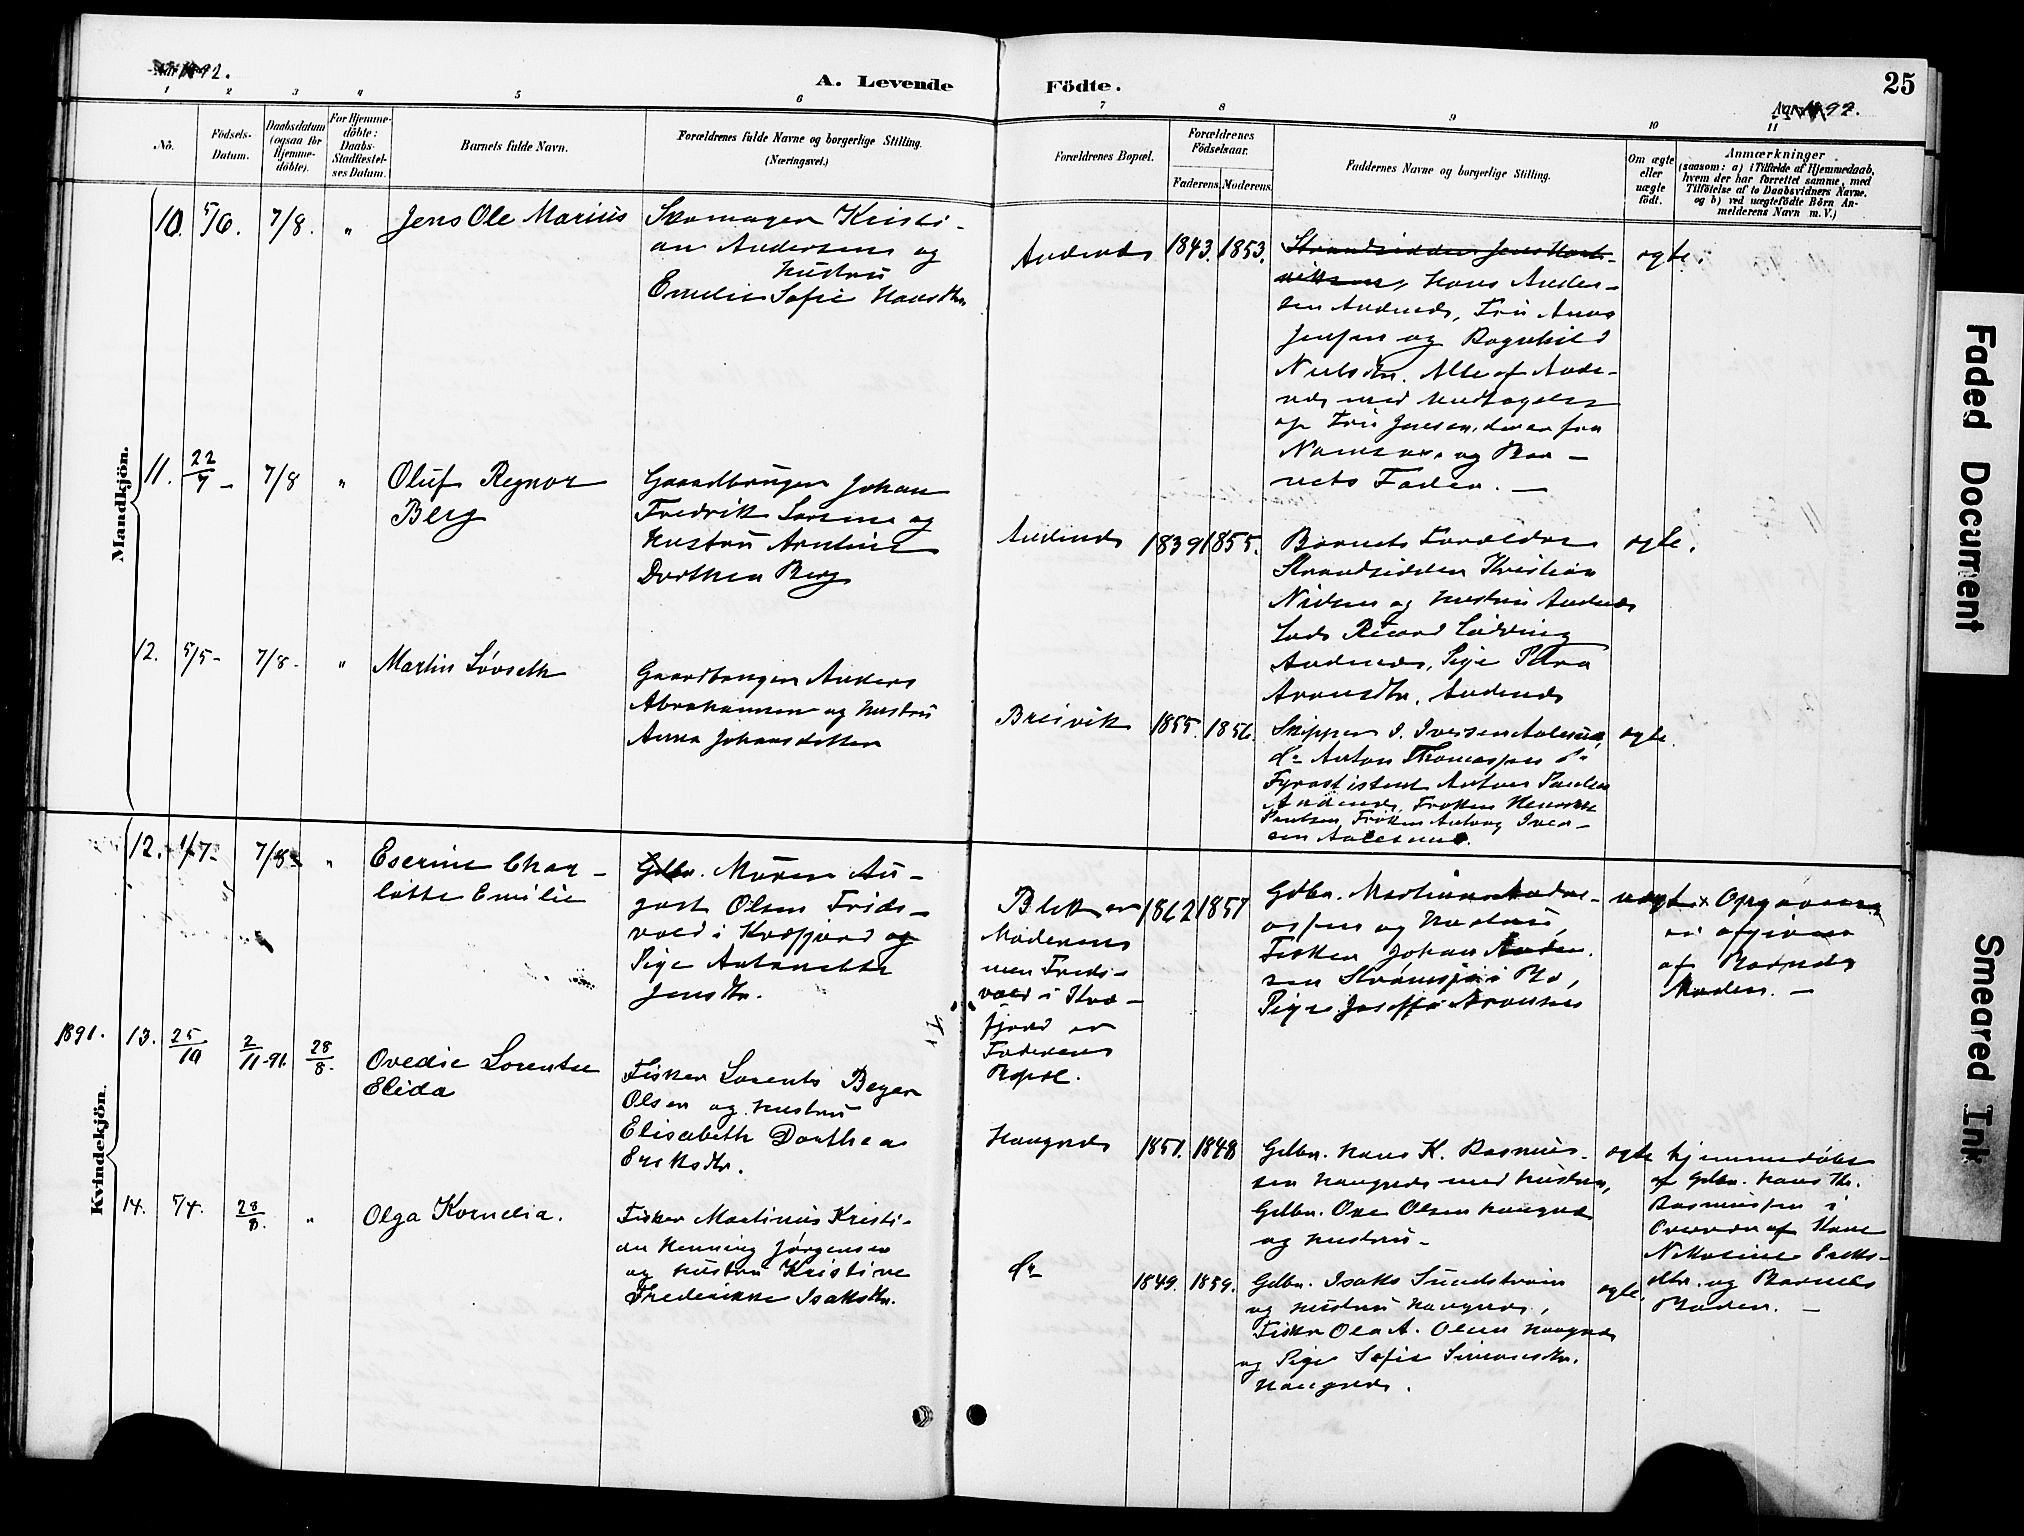 92.
A. Levende Födte.
25
92.
1 2 3 4 5 6 7 8 9 10 11
No.
Födsels-
Datum.
Daabsdatum
(ogsaa for
Hjemme-
döbte).
For Hjemme-
döbte:
Daabs-
Stadfæstel-
ses Datum.
Barnets fulde Navn.
Forældrenes fulde Navne og borgerlige Stilling.
(Næringsvei.)
Forældrenes Bopæl.
Forældrenes
Födselsaar.
Faderens. Moderens.
Faddernes Navne og borgerlige Stilling.
Om ægte
eller
uægte
födt.
Anmærkninger
(saasom: a) i Tilfælde af Hjemmedaab,
hvem der har forrettet samme, med
Tilföielse af to Daabsvidners Navne.
og b) ved uægtefödte Börn An-
melderens Navn m. V.)
Mandkjön.
10. 5/6. 7/8. "
Jens Ole Marius
Skomager Kristi-
an Andersen og
Hustru
Emelie Sofie Hansdtr
Andenes
1843. 1853.
Strandsidder Jens Hen-
riksen, Hans Ander-
sen Andenes, Fru Anna
Jensen og Ragnhild
Nielsdtr. Alle af Ande-
nes med Undtagelse
af Fru Jensen, der er fra
Namsos. og Bar-
nets Fader. —
ægte.
11. 22/7 - 7/8 "
Oluf Regnor
Berg
Gaardbruger Johan
Fredrik Larsen og
Hustru Arntine
Dorthea Berg
Andenes
1839 1855.
Barnets Forældre
Strandsidder Kristian
Nielsen og Hustru Andenes
Lods Rikard Lødding
Andenes, Pige Petra
Aronsdtr. Andenes
ægte.
12. 5/5- 7/8- "
Martin Løvseth
Gaardbruger Ankers
Abrahamsen og Hustru
Anna Johansdatter
Breivik
1855. 1856.
Skipper I. Iversen Aalesund,
do Anton Thomassen do
Fyrassistent Anton Paulsen
Andenes, Frøken Henrikke
Paulsen, Frøken Antong Iver-
sen Aalesund.
ægte.
Kvindekjön.
12. 1/7- 7/8- "
Eserine Char-
lotte Emilie
Gdbr. Maren Au-
gust Olsen Frids-
vold i Kvæfjord og
Pige Antonette
Jensdtr.
Bleik er
Moderens
men Freds-
vold i Kvæ-
fjord er
Faderens
Bopæl.
1862 1857
Gdbr. Martinus Andre-
assen og Hustru,
Fisker Johan Ander-
sen Strømsjø i Bø,
Pige Josefa Aronsen
uægte
x Opgaven
er afgiven
af Barnets
Moder. —
1891. 13. 25/10 2/11-91. 28/8.
Ovedie Lorentse
Elida
Fisker Lorents Beyer
Olsen og Hustru
Elisabeth Dorthea
Eriksdtr.
Haugnes
1851. 1848
Gdbr. Hans K. Rasmus-
sen Haugnes med Hustru,
Gdbr. Ove Olsen Haugnes
og Hustru -
ægte
hjemmedøbt
af Gdbr. Hans Kr.
Rasmussen i
Overvær af Hane
Nikoline Eriks-
dtr. og Barnets
Moder. —
14. 5/4. 28/8. "
Olga Kornelia.
Fisker Martinus Kristi-
an Henning Jørgensen
og Hustru Kristine
Frederikke Isaksdtr.
do
1849. 1859.
Gdbr. Isaks Sundstrøm
og Hustru Haugnes,
Fisker Ola A. Olsen Haugnes
og Pige Sofie Simonsdtr.
Haugnes.
ægte.
Faded Document
Smeared Ink